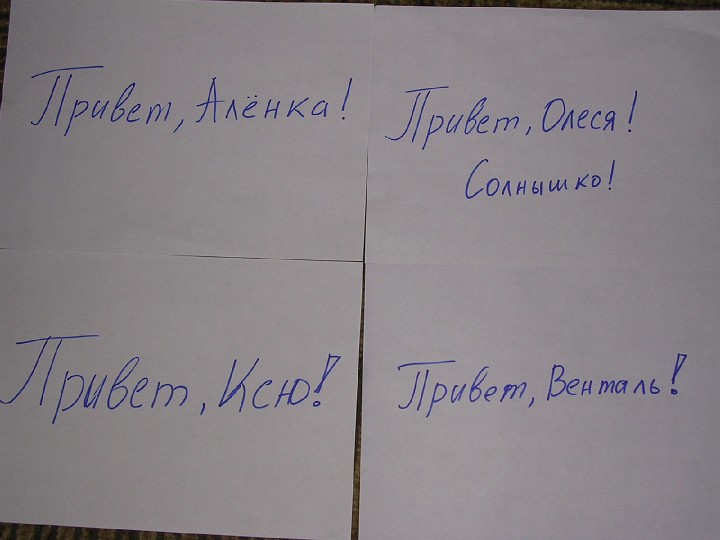 Привет, Алёнка!
Привет, Олеся!
Солнышко!
Привет, Ксю!
Привет, Венталь!